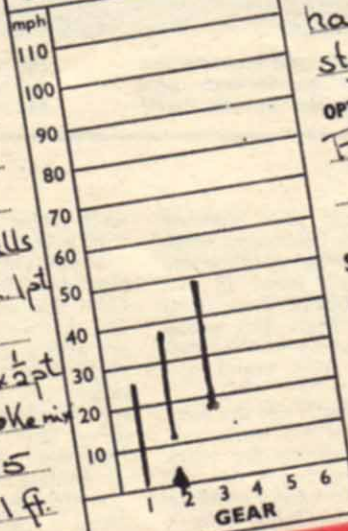 mph
110
100
90
80
70
60
50
40
30
20
10
1 2 3 4 5 6
GEAR
lls
1pt
x ½pt
5
1 ft.
ha
st
OP